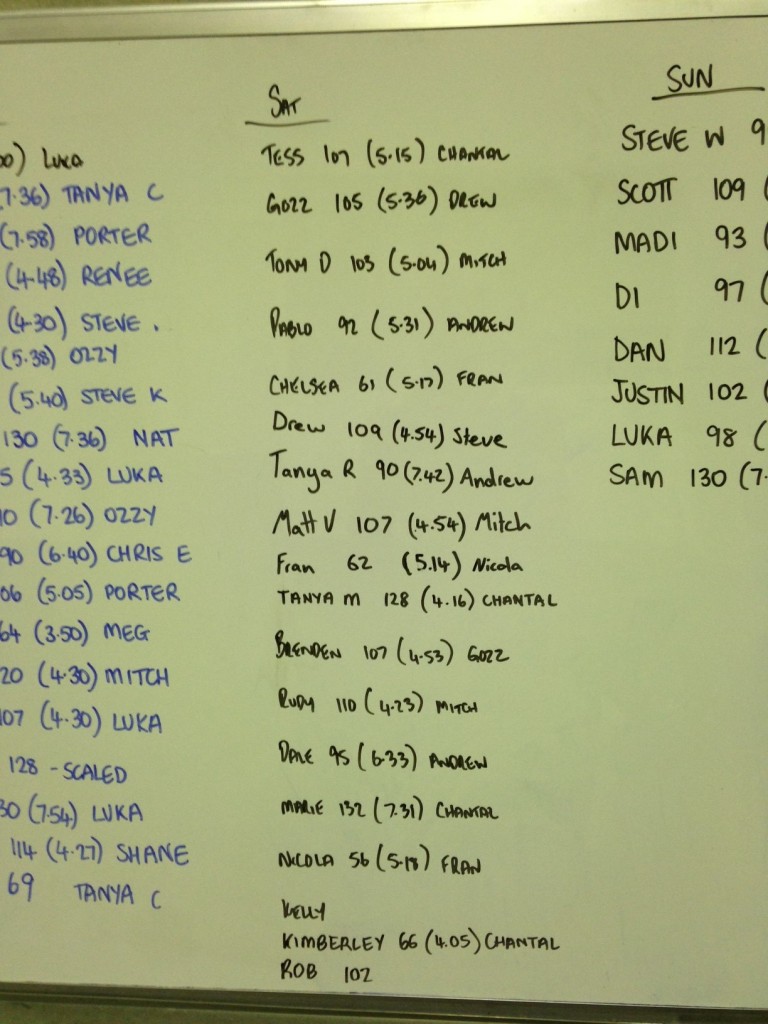 00) LUKA
7.36) TANYA C
(7.58) PORTER
(4.48) RENEE
(4.30) STEVE .
(5.38) OZZY
(5.40) STEVE K
130 (7.36) NAT
5 (4.33) LUKA
10 (7.26) OZZY
90 (6.40) CHRIS E
06 (5.05) PORTER
64 (3.50) MEG
20 (4.30) MITCH
107 (4.30) LUKA
128 - SCALED
30 (7.54) LUKA
114 (4.27) SHANE
69 TANYA C
SAT
TESS 107 (5.15) CHANTAL
GOZZ 105 (5.36) DREW
TONY D 103 (5.04) MITCH
PABLO 92 (5.31) ANDREW
CHELSEA 61 (5.17) FRAN
Drew 109 (4.54) Steve
Tanya R 90 (7.42) Andrew
Matt V 107 (4.54) Mitch
Fran 62 (5.14) Nicola
TANYA M 128 (4.16) CHANTAL
BRENDEN 107 (4.53) GOZZ
RUDY 110 (4.23) MITCH
DALE 95 (6.33) ANDREW
MARIE 132 (7.31) CHANTAL
NICOLA 56 (5.18) FRAN
KELLY
KIMBERLEY 66 (4.05) CHANTAL
ROB 102
SUN
STEVE W 9
SCOTT 109 (
MADI 93 (
DI 97 (
DAN 112 (
JUSTIN 102 (
LUKA 98 (
SAM 130 (7.